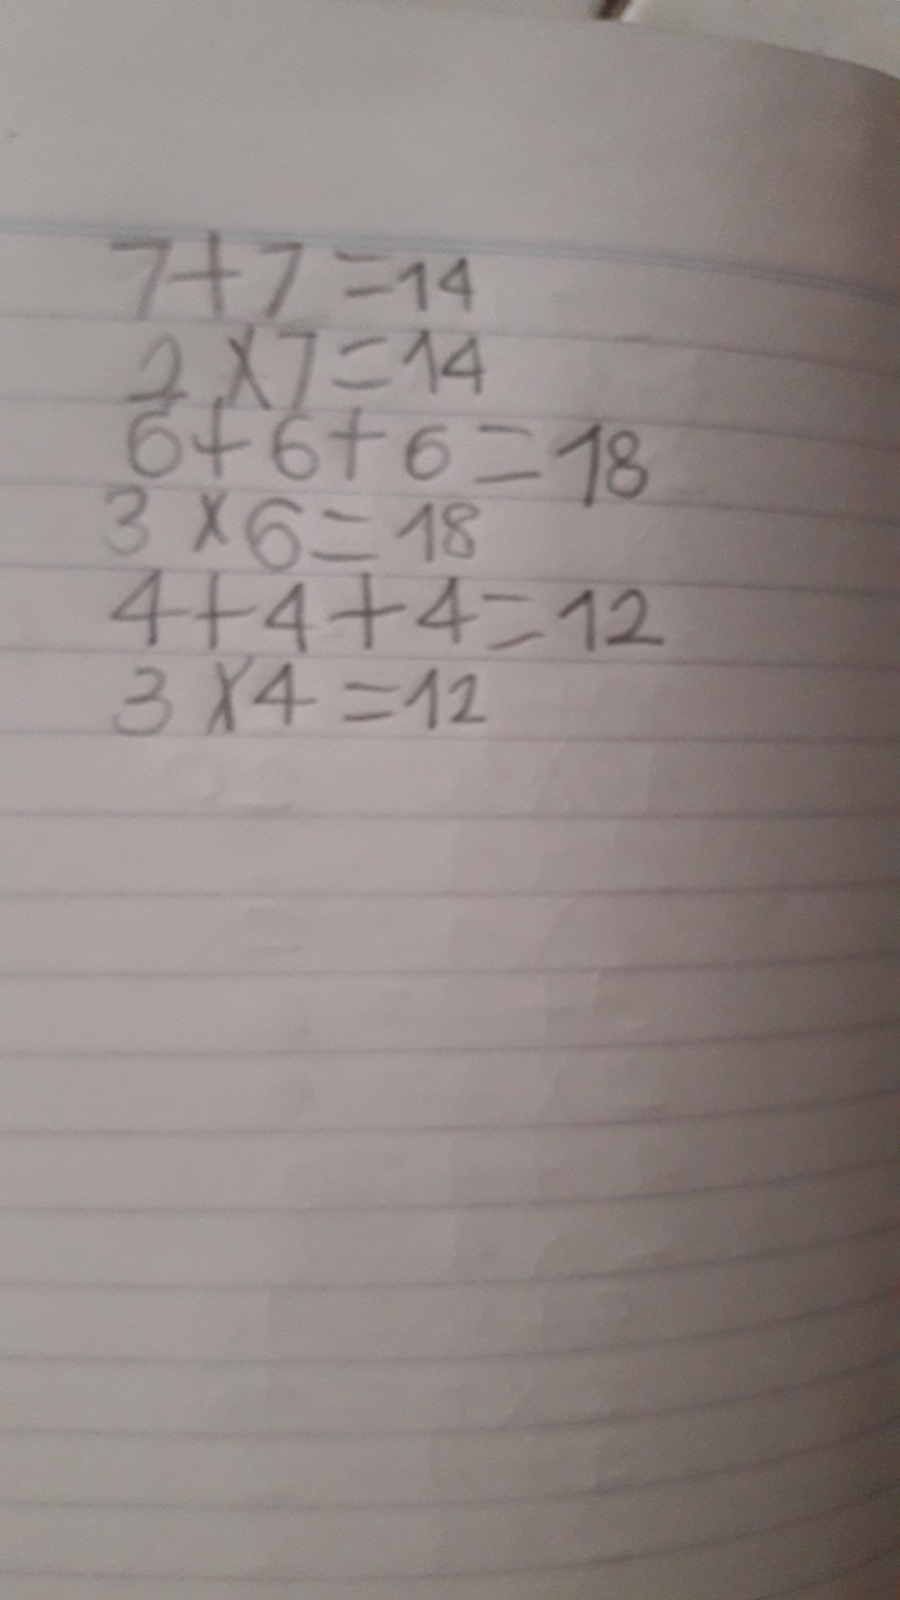 7+7=14
2×7=14
6+6+6=18
3×6=18
4+4+4=12
3×4=12